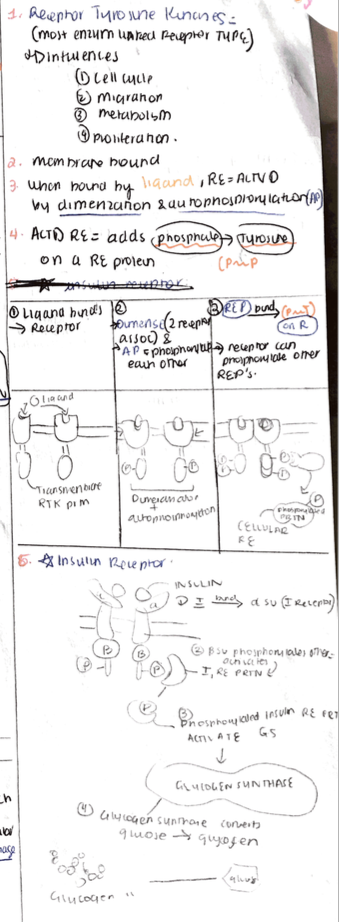 1. Receptor Tyrosine Kinases =
(most enzym linked Receptor TYPE)
Influences
① Cell cycle
② migration
③ metabolism
④ proliteration.
2. membrane bound
3. when bound by ligand, RE = ALTVD
by dimenzation & autophosphorylation (AP)
4. ALTD RE = adds phosphate → Tyrosine
on a RE protein
insulin receptor
① Ligand binds
→ Receptor
②
→ Dimense (2 receptor
assoc) &
→ AP = phosphorylate
each other
③ REP bind
on R
→ receptor can
phosphorylate other
REP's.
ligand
Transmembrane
RTK
P
P
autophosphorylation
P
P
P
P
CELLULAR
RE
5. ☆ Insulin Receptor.
INSULIN
① I binds → α SU (I Receptor)
α
B
B
P
P
② BSU phosphorylates other =
activates
I, RE PRTN
P
③
phosphorylated insulin RE PRT
ACTIVATE GS
GLYCOGEN SYNTHASE
④ Glycogen synthase converts
glucose → glycogen
Glucogen